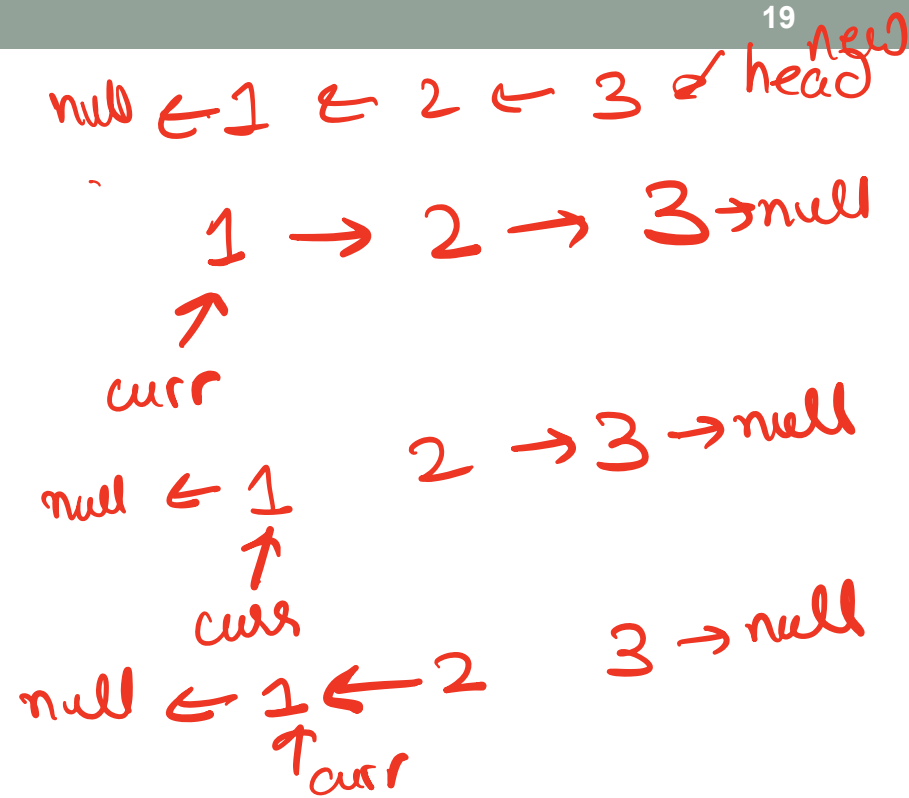 19
new
null ← 1 ← 2 ← 3 ↙ head
1 → 2 → 3 → null
↑
curr
2 → 3 → null
null ← 1
↑
curr
3 → null
null ← 1 ← 2
↑
curr